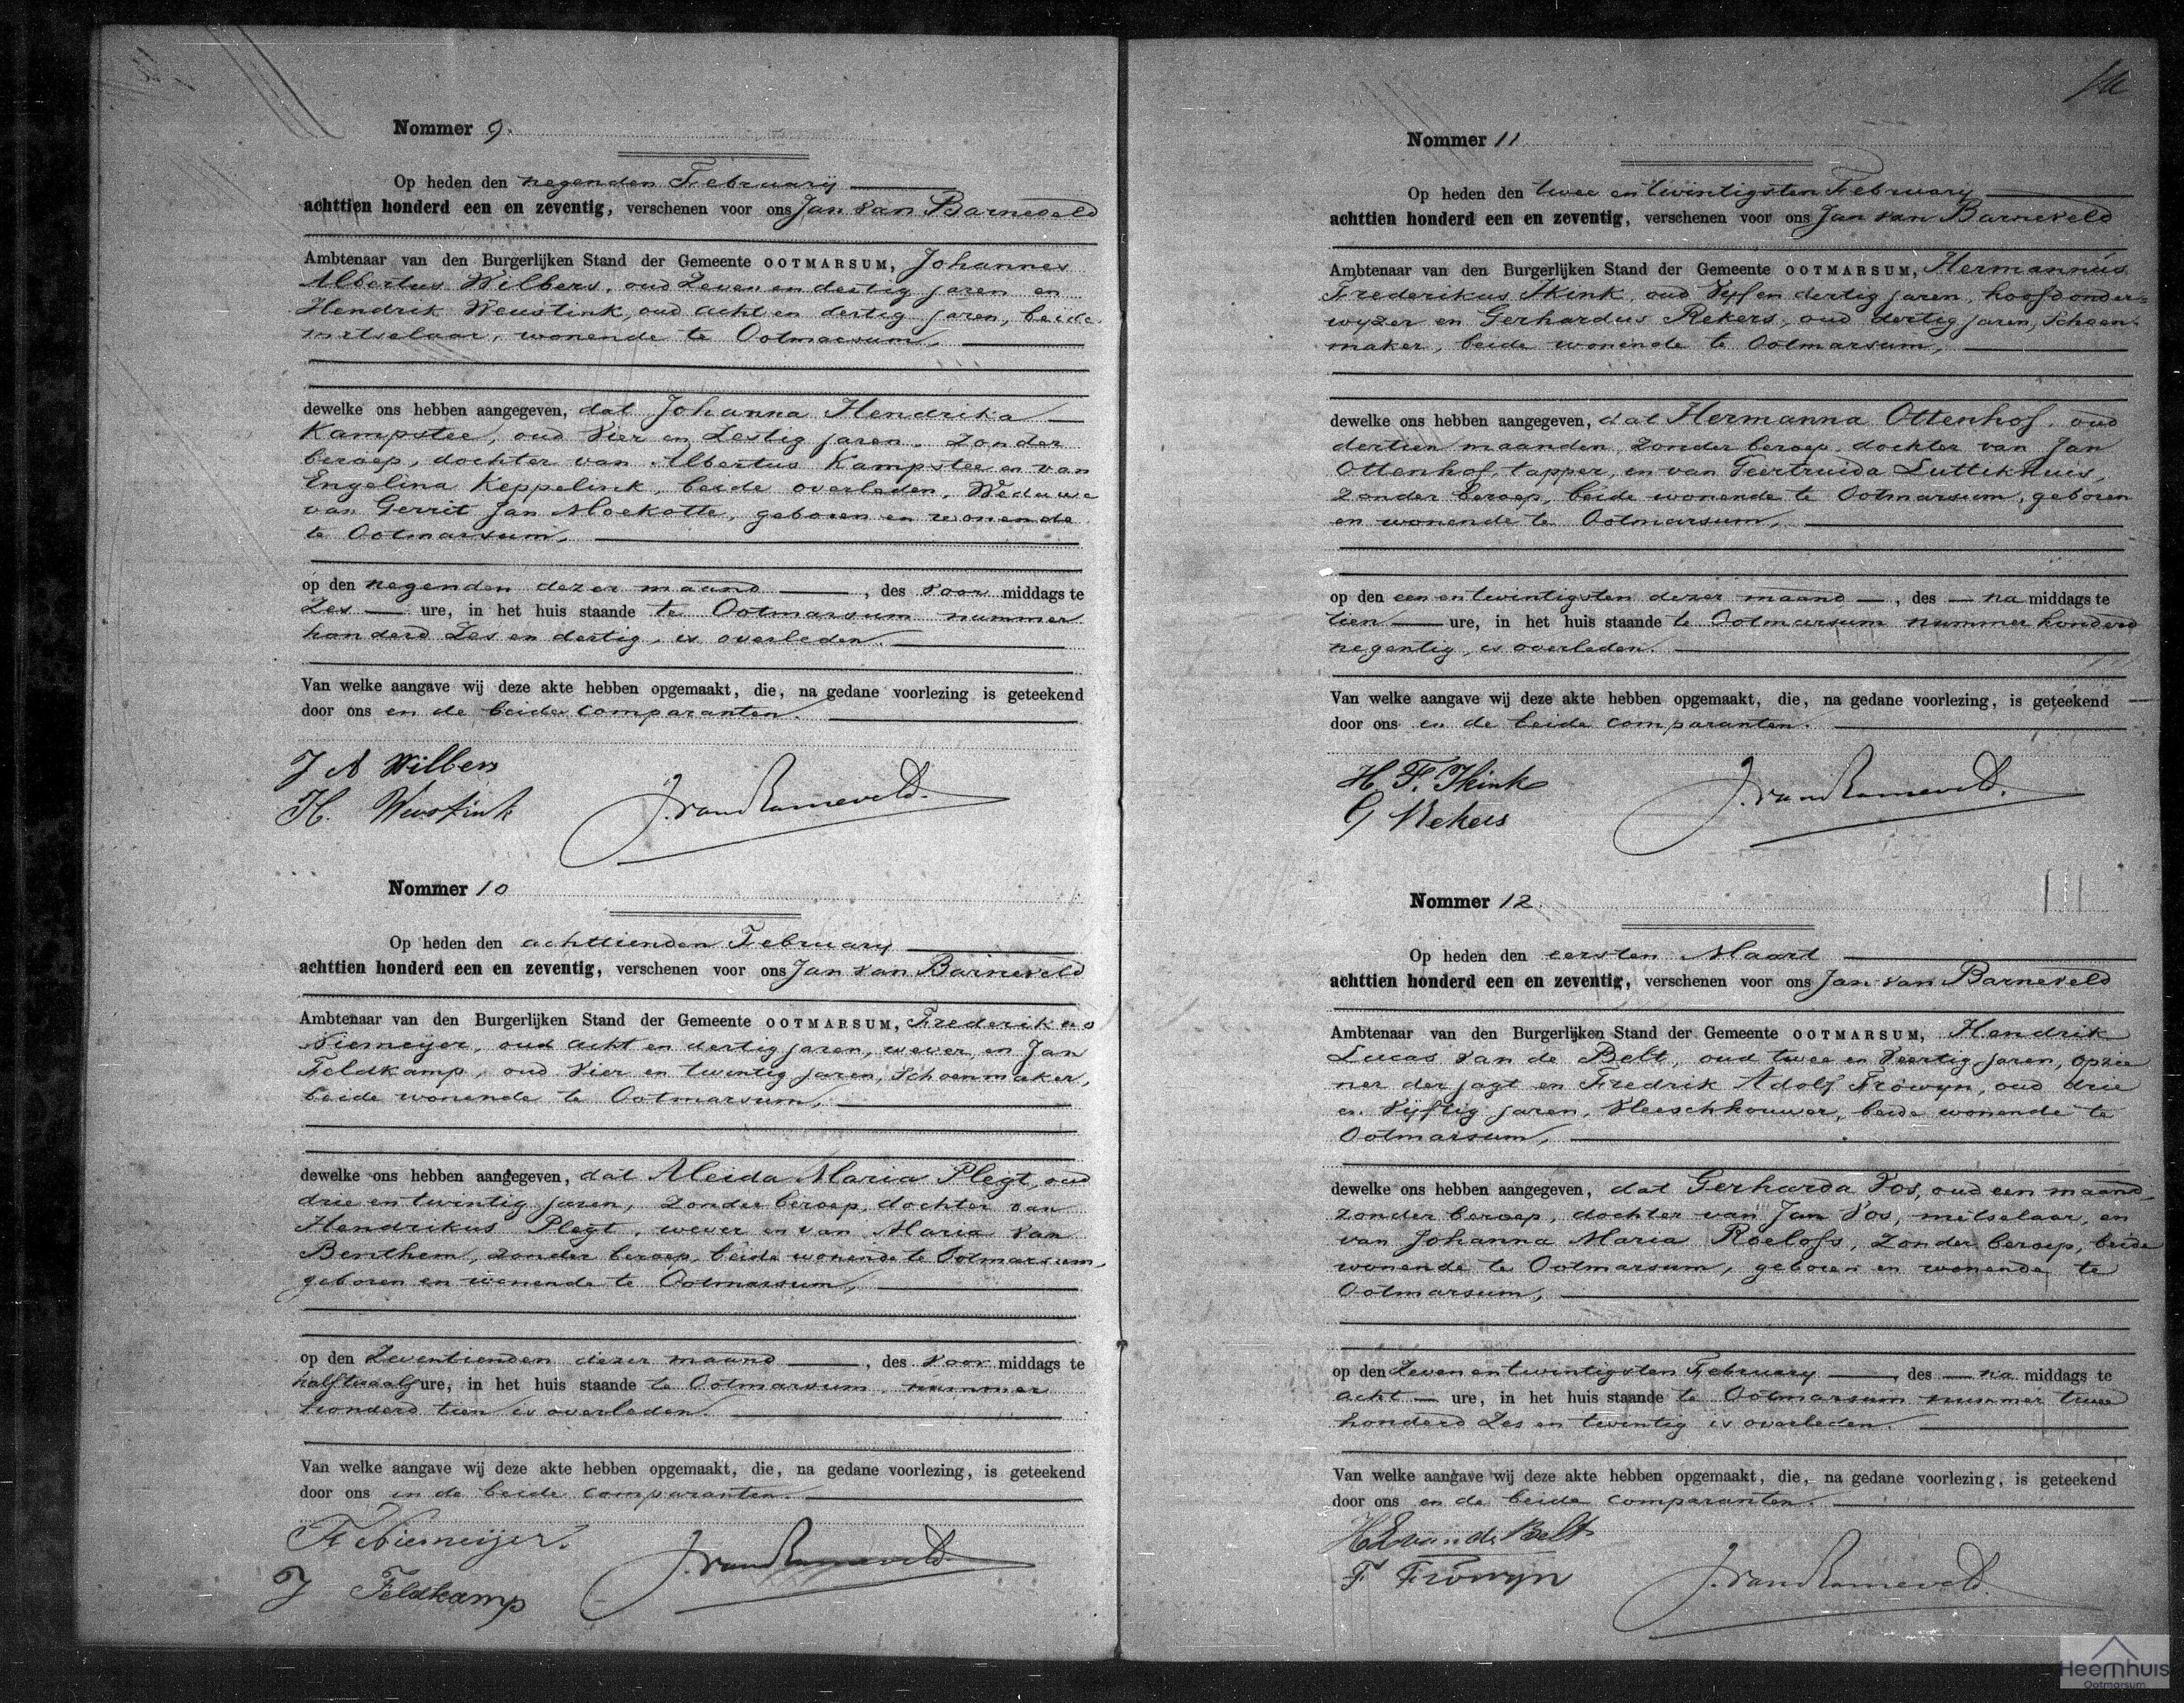 Nommer 9.
Op heden den negenden February
achttien honderd een en zeventig, verschenen voor ons Jan van Barneveld
Ambtenaar van den Burgerlijken Stand der Gemeente OOTMARSUM, Johannes
Albertus Wilbers, oud Zeven en dertig jaren en
Hendrik Weustink, oud acht en dertig jaren, beide
metselaar, wonende te Ootmarsum,
dewelke ons hebben aangegeven, dat Johanna Hendrika
Kampstee, oud Vier en Zestig jaren, zonder
beroep, dochter van Albertus Kampstee en van
Engelina Keppelink, beide overleden, Weduwe
van Gerrit Jan Moekotte, geboren en wonende
te Ootmarsum,
op den negenden dezer maand, des voor middags te
Zes ure, in het huis staande te Ootmarsum nummer
honderd Zes en dertig, is overleden.
Van welke aangave wij deze akte hebben opgemaakt, die, na gedane voorlezing is geteekend
door ons en de beide comparanten.
J A Wilbers
H. Weustink
J. van Barneveld.
Nommer 10
Op heden den achttienden February
achttien honderd een en zeventig, verschenen voor ons Jan van Barneveld
Ambtenaar van den Burgerlijken Stand der Gemeente OOTMARSUM, Frederikus
Niemeijer, oud acht en dertig jaren, wever, en Jan
Feldkamp, oud Vier en twintig jaren, Schoenmaker,
beide wonende te Ootmarsum,
dewelke ons hebben aangegeven, dat Aleida Maria Plegt, oud
drie en twintig jaren, zonder beroep, dochter van
Hendrikus Plegt, wever en van Maria van
Benthem, zonder beroep, beide wonende te Ootmarsum,
geboren en wonende te Ootmarsum,
op den Zeventienden dezer maand, des voor middags te
half twaalf ure, in het huis staande te Ootmarsum nummer
honderd tien is overleden.
Van welke aangave wij deze akte hebben opgemaakt, die, na gedane voorlezing, is geteekend
door ons en de beide comparanten.
F Niemeijer.
J Feldkamp
J. van Barneveld.
Nommer 11
Op heden den twee en twintigsten February
achttien honderd een en zeventig, verschenen voor ons Jan van Barneveld
Ambtenaar van den Burgerlijken Stand der Gemeente OOTMARSUM, Hermannus
Frederikus Ikink, oud Vyf en dertig jaren, hoofdonder=
wyzer en Gerhardus Rekers, oud dertig jaren, Schoen-
maker, beide wonende te Ootmarsum,
dewelke ons hebben aangegeven, dat Hermanna Ottenhof, oud
dertien maanden, zonder beroep, dochter van Jan
Ottenhof, tapper, en van Geertruida Luttikhuis,
zonder beroep, beide wonende te Ootmarsum, geboren
en wonende te Ootmarsum,
op den een en twintigsten dezer maand, des na middags te
tien ure, in het huis staande te Ootmarsum nummer honderd
negentig, is overleden.
Van welke aangave wij deze akte hebben opgemaakt, die, na gedane voorlezing, is geteekend
door ons en de beide comparanten.
H. F. Ikink
G Rekers
J. van Barneveld.
Nommer 12.
Op heden den eersten Maart
achttien honderd een en zeventig, verschenen voor ons Jan van Barneveld
Ambtenaar van den Burgerlijken Stand der Gemeente OOTMARSUM, Hendrik
Lucas van de Belt, oud twee en Veertig jaren, opzie
ner der jagt en Fredrik Adolf Fröwyn, oud drie
en Vijftig jaren, Vleeschhouwer, beide wonende te
Ootmarsum,
dewelke ons hebben aangegeven, dat Gerharda Vos, oud een maand,
zonder beroep, dochter van Jan Vos, metselaar, en
van Johanna Maria Roelofs, zonder beroep, beide
wonende te Ootmarsum, geboren en wonende te
Ootmarsum,
op den Zeven en twintigsten February, des na middags te
acht ure, in het huis staande te Ootmarsum nummer twee
honderd Zes en twintig is overleden.
Van welke aangave wij deze akte hebben opgemaakt, die, na gedane voorlezing, is geteekend
door ons en de beide comparanten.
H L van de Belt
F Fröwyn
J. van Barneveld.
Heemhuis
Ootmarsum